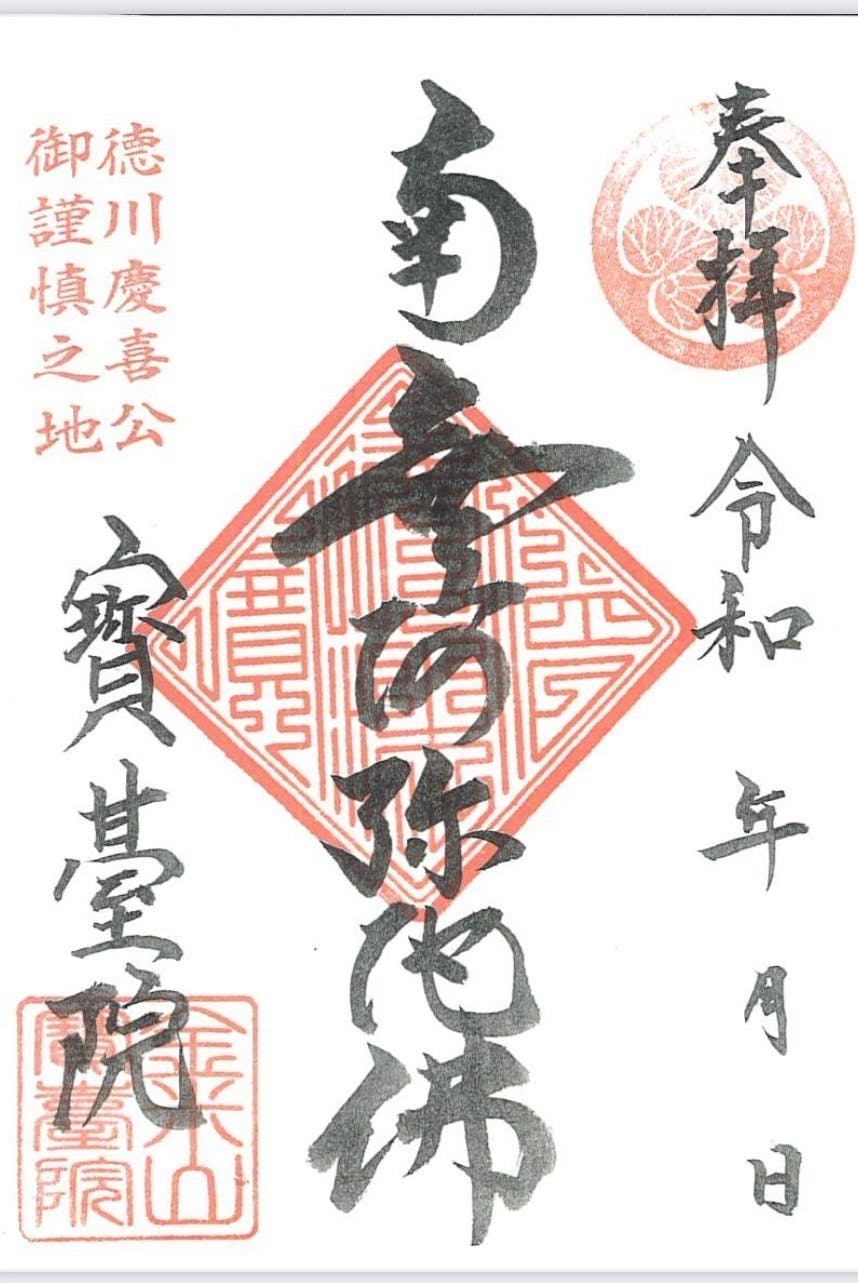 奉拝
令和 年 月 日
南無阿弥陀佛
德川慶喜公
御謹慎之地
寳臺院
金米山
寳臺院